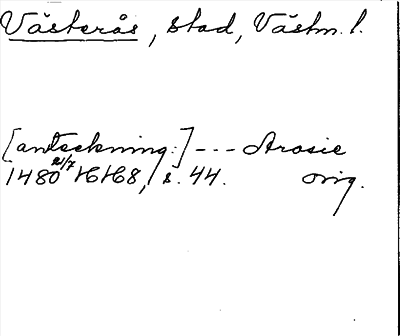 Västerås, stad, Västm. l.
[anteckning:] --- Arosie
1480 21/7 HH68, s. 44. Orig.